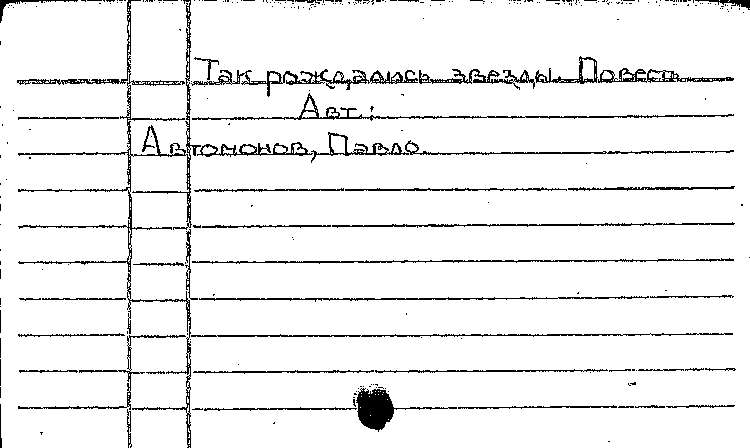 Так рождались звезды. Повесть
Авт.:
Автомонов, Павло.